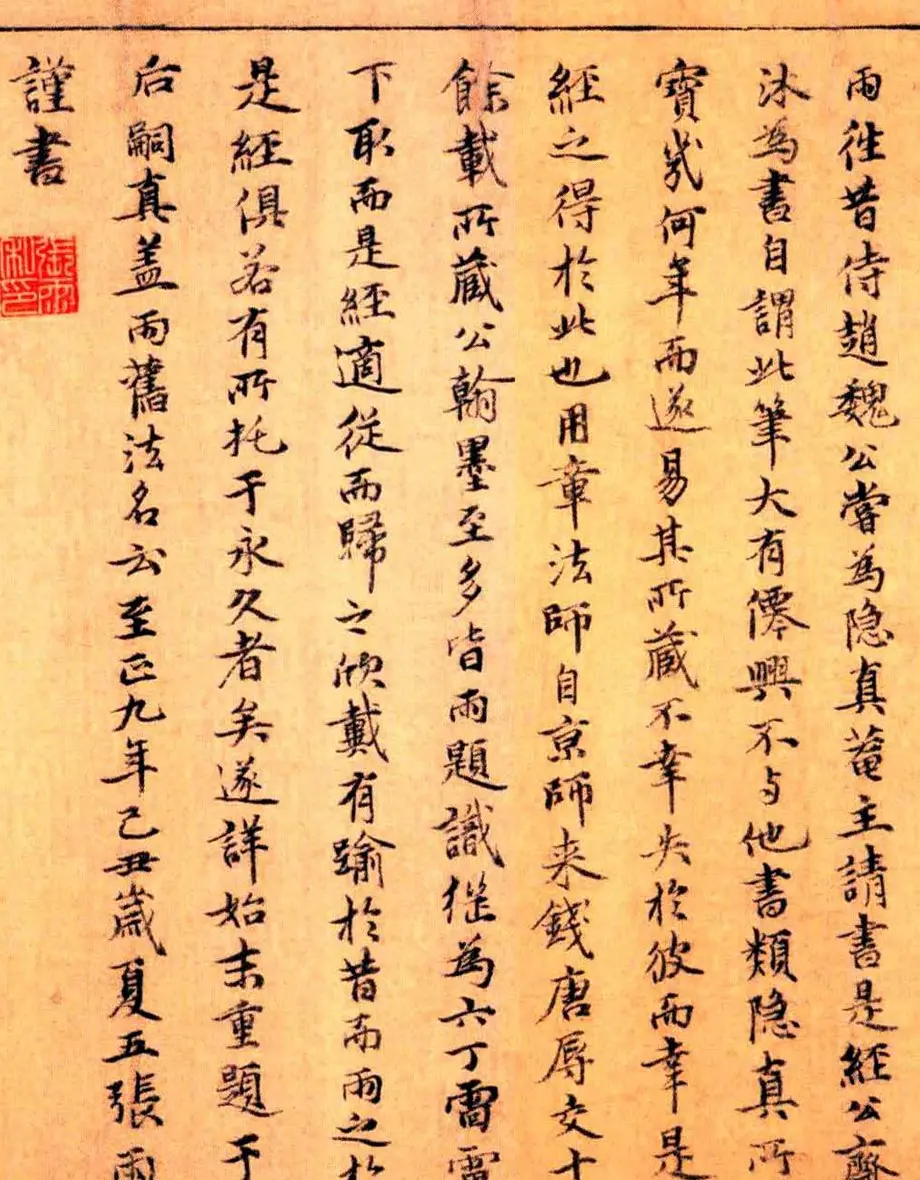 雨往昔侍趙魏公嘗為隐真菴主請書是經公齋
沐為書自謂此筆大有僊興不与他書類隐真所
寳幾何年而遂易其所藏不幸失於彼而幸是
經之得於此也用章法師自京師来錢唐辱交十
餘載所蔵公翰墨至多皆雨題識従為六丁雷電
下取而是經適從而歸之欣戴有踰於昔而雨之於
是經俱若有所托于永久者矣遂詳始末重題于
后嗣真盖雨舊法名云至正九年己丑歲夏五張雨
謹書